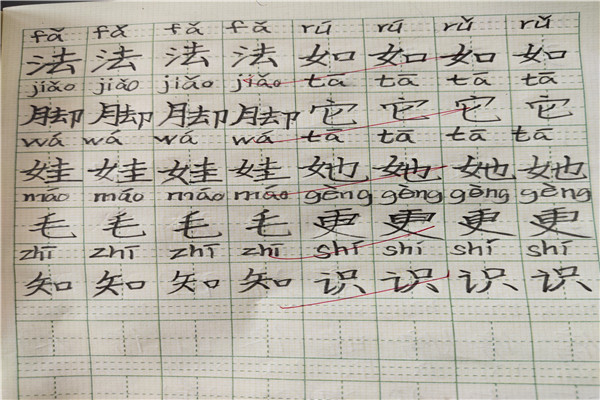 fǎ fǎ fǎ fǎ rú rú rǔ rǔ
法 法 法 法 如 如 如 如
jiǎo jiǎo jiǎo jiǎo tā tā tā tā
脚 脚 脚 脚 它 它 它 它
wá wá wá wá tā tā tā tā
娃 娃 娃 娃 她 她 她 她
máo máo máo máo gèng gèng gèng gèng
毛 毛 毛 毛 更 更 更 更
zhī zhī zhī zhī shí shí shí shí
知 知 知 知 识 识 识 识